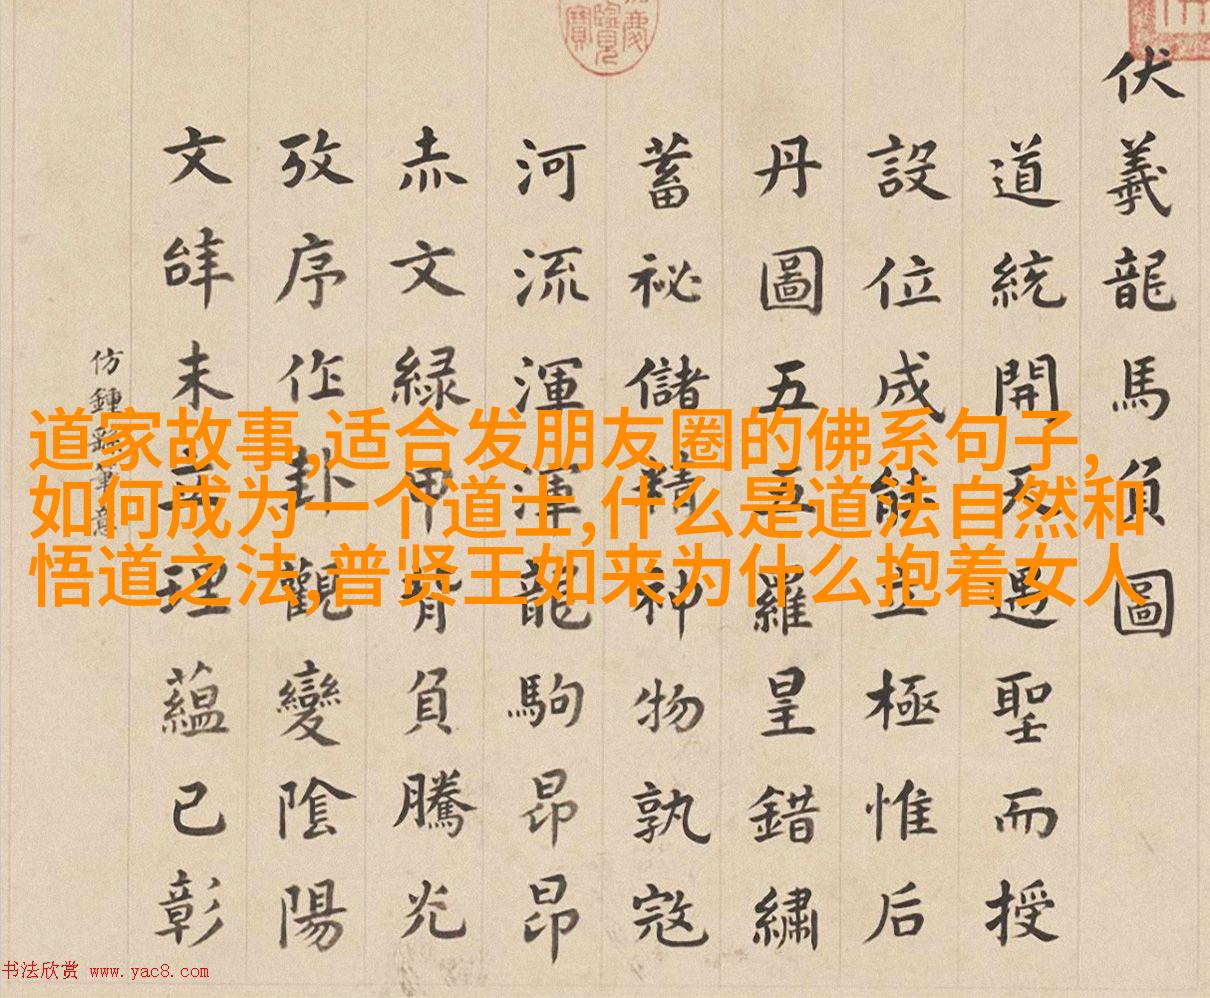 伏羲龍馬負圖
道統開天遇聖而授
設位成能立極惟后
丹圖五五羅皇錯繡
蓄祕儲精神物孰寇
河流渾渾龍駒昂昂
赤文緑甲背負騰光
攷序作卦觀變陰陽
文辝未 理蘊已彰
仿鍾繇筆意
慶覽寶
道家故事,适合发朋友圈的佛系句子,
如何成为一个道士,什么是道法自然和
悟道之法,普贤王如来为什么抱着女人
书法欣赏 www.yac8.com